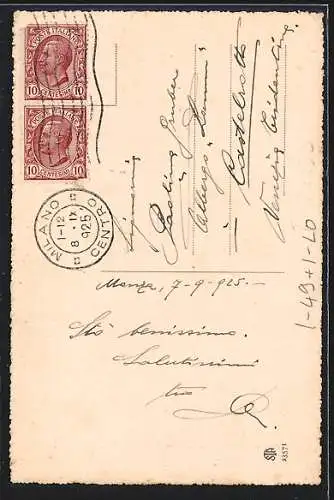 POSTE ITALIANE
10 CENTESIMI 10
POSTE ITALIANE
10 CENTESIMI 10
MILANO
1-12
8 IX
925
CENTRO
Signori
Albergo
Castelrotto
Venezia Tridentina
1-49+1-20
Monza, 7-9-925-
Sto benissimo.
Salutissimi
tuo
33571